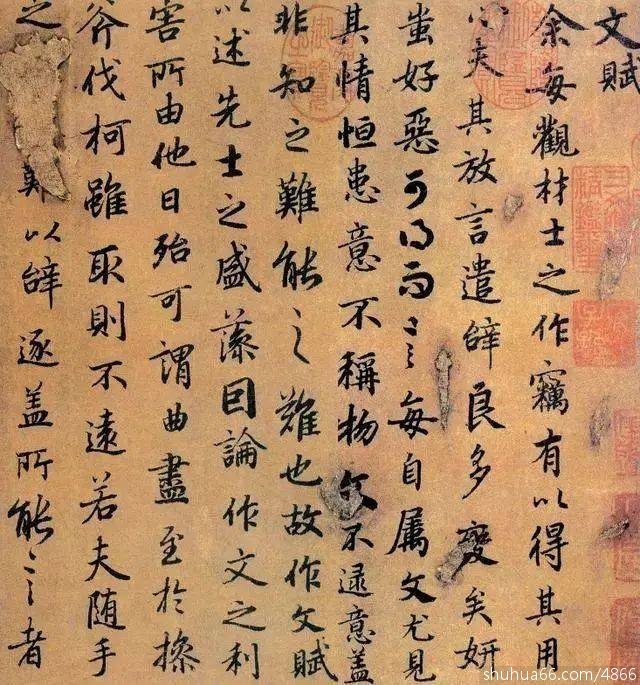 文賦
余每觀材士之作竊有以得其用
心夫其放言遣辭良多變矣妍
蚩好惡可得而言每自属文尤見
其情恒患意不稱物文不逮意盖
非知之難能之難也故作文賦
以述先士之盛藻因論作文之利
害所由他日殆可謂曲盡至於操
斧伐柯雖取則不遠若夫随手
之難以辭逐盖所能言者
shuhua66.com/4866